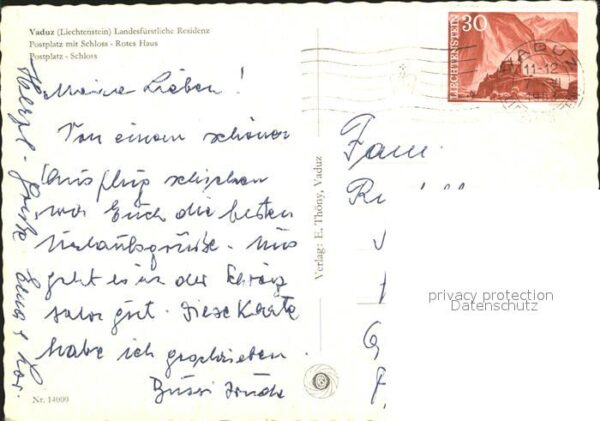 Vaduz (Liechtenstein) Landesfürstliche Residenz
Postplatz mit Schloss - Rotes Haus
Postplatz - Schloss
Meine Lieben!
Von einem schönen
Ausflug schicken
wir Euch die besten
Urlaubsgrüße. Uns
geht es in der Schweiz
sehr gut. Diese Karte
habe ich geschrieben.
Bussi
Herzl. Grüße
Nr. 14009
Verlag: E. Thöny, Vaduz
LIECHTENSTEIN
30
VADUZ
11-12
Fam.
privacy protection
Datenschutz